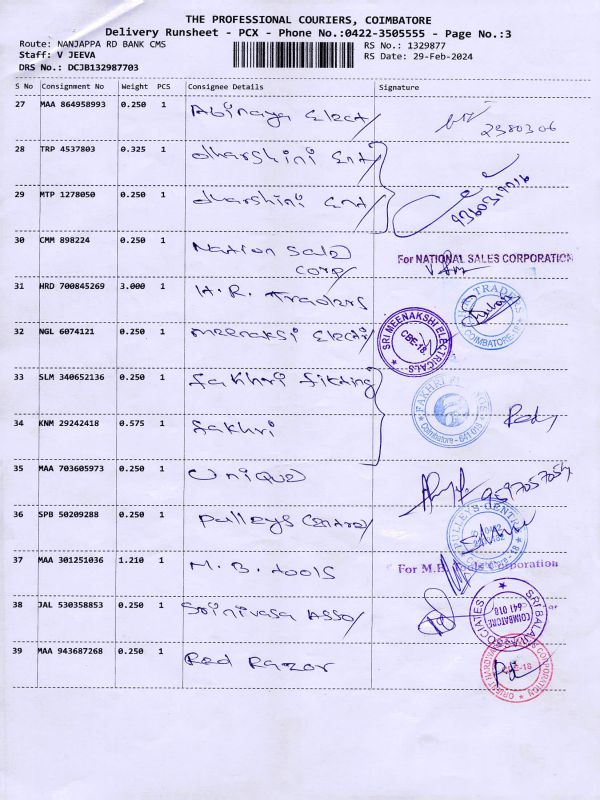 THE PROFESSIONAL COURIERS, COIMBATORE
Delivery Runsheet - PCX - Phone No.:0422-3505555 - Page No.:3
Route: NANJAPPA RD BANK CMS RS No.: 1329877
Staff: V JEEVA RS Date: 29-Feb-2024
DRS No.: DCJB132987703
S No Consignment No Weight PCS Consignee Details Signature
27 MAA 864958993 0.250 1 Abinaya Elect/
2380306
28 TRP 4537803 0.325 1 dharshini Ent/
29 MTP 1278050 0.250 1 dharshini Ent/
30 CMM 898224 0.250 1 Nation Sale
Corp/
For NATIONAL SALES CORPORATION
31 HRD 700845269 3.000 1 H.R. Traders
TRADERS
COIMBATORE
32 NGL 6074121 0.250 1 Meenaksi Elect/
SRI MEENAKSHI ELECTRICALS
CBE-18
33 SLM 340652136 0.250 1 fakhri fitting
34 KNM 29242418 0.575 1 fakhri
Coimbatore - 641 018
35 MAA 703605973 0.250 1 Unique
36 SPB 50209288 0.250 1 Pulleys Centre/
PULLEYS CENTRE
37 MAA 301251036 1.210 1 M. B. tools
For M.B. Tools Corporation
38 JAL 530358853 0.250 1 Srinivasa Asso/
SRI BALAJI ASSOCIATES
COIMBATORE
641 018
39 MAA 943687268 0.250 1 Red Razor
ORIENT HARDWARE CORPORATION
CBE-18